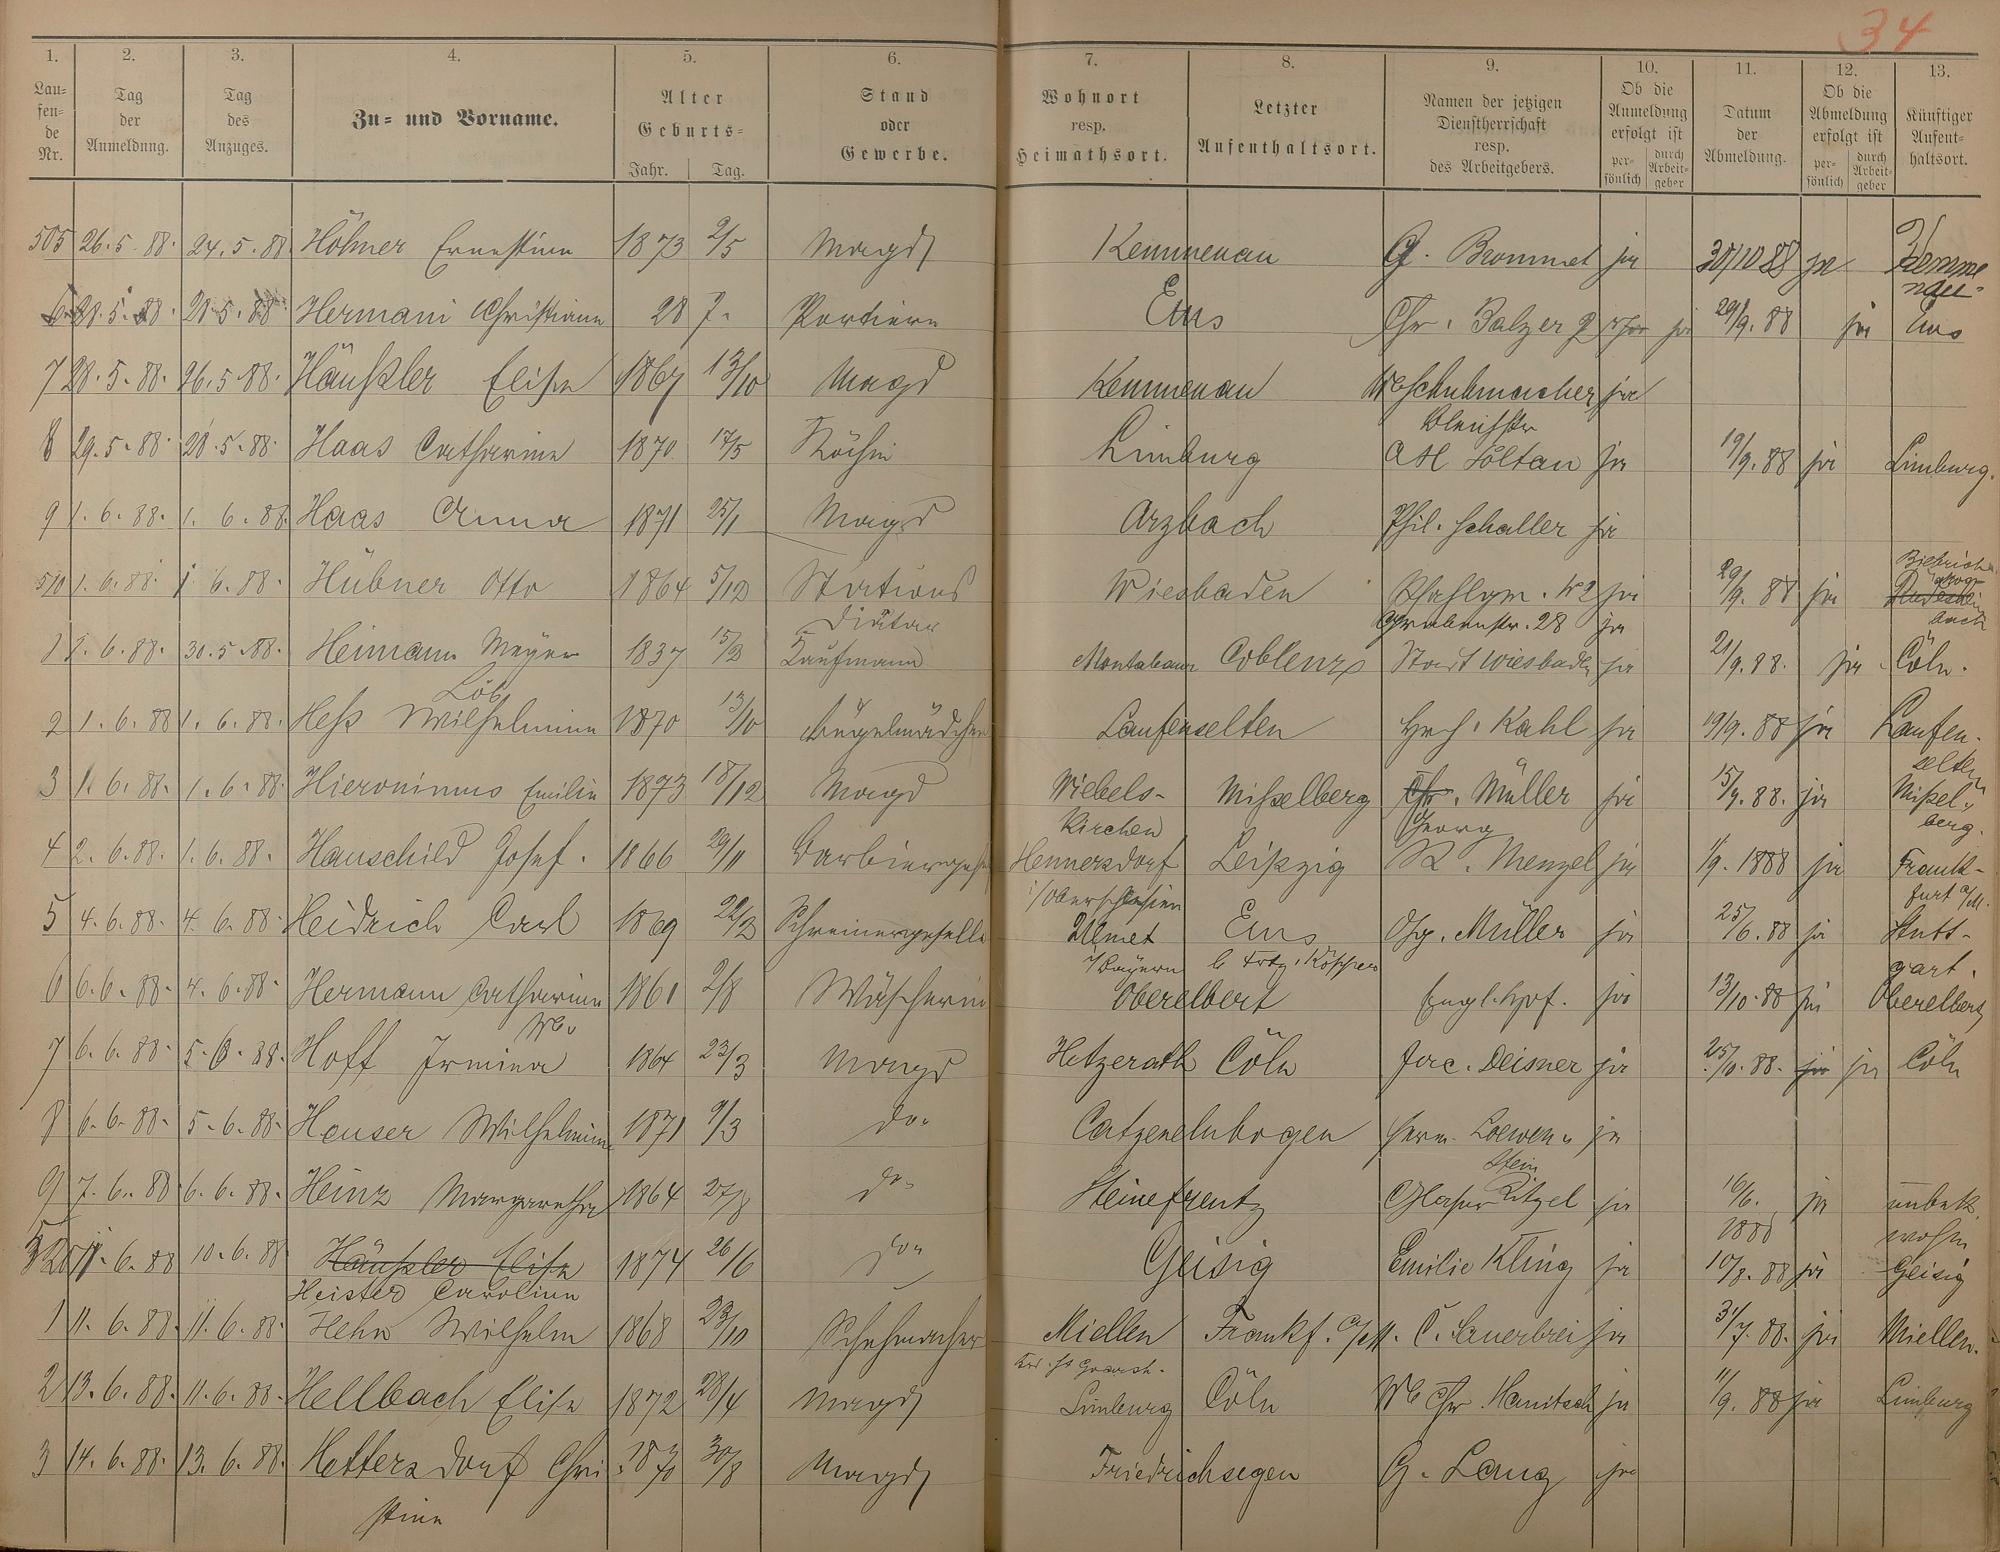 34
1. 2. 3. 4. 5. 6. 7. 8. 9. 10. 11. 12. 13.
Lau=fen=de Nr. Tag der Anmeldung. Tag des Anzuges. Zu= und Vorname. Alter Geburts= Jahr. Tag. Stand oder Gewerbe. Wohnort resp. Heimathsort. Letzter Aufenthaltsort. Namen der jetzigen Dienstherrschaft resp. des Arbeitgebers. Ob die Anmeldung erfolgt ist per=sönlich durch Arbeit=geber Datum der Abmeldung. Ob die Abmeldung erfolgt ist per=sönlich durch Arbeit=geber Künftiger Aufent=haltsort.
505 26.5.88. 24.5.88 Höhner Ernestine 1873 2/5 Magd Kemmenau G. Brommet ja 30/10 88 ja Kemme
nau
6 28.5.88. 28.5.88 Hermani Christiane 28 J. Portiere Ems Chr. Balzer ja 29/9. 88 ja Ems
7 28.5.88. 26.5.88. Häußler Elise 1867 13/10 Magd Kemmenau Schuhmacher ja
Bleichstr
8 29.5.88. 28.5.88. Haas Catharine 1870 17/5 Köchin Limburg Ad Soltau ja 19/9. 88 ja Limburg.
9 1.6.88. 1.6.88. Haas Anna 1871 25/1 Magd Arzbach Phil. Schaller ja
Biebrich
510 1.6.88. 1.6.88. Hübner Otto 1864 5/12 Stations Wiesbaden ja 29/9. 88 ja
Diätar Grabenstr. 28 ja
1 1.6.88. 30.5.88. Heimann Meyer 1837 15/2 Kaufmann Montabaur Coblenz Stadt Wiesbaden ja 21/9.88. ja Cöln.
Löb
2 1.6.88 1.6.88. Heß Wilhelmine 1870 13/10 Bügelmädchen Laufenselten Hrch. Kahl ja 19/9. 88 ja Laufen-
selten
3 1.6.88. 1.6.88 Hieronimus Emilie 1873 18/12 Magd Wiebels- Mißelberg Chr. Müller ja 15/9. 88. ja Mißel-
kirchen Georg berg.
4 2.6.88. 1.6.88. Hauschild Josef. 1866 29/11 Barbiergeh Hennersdorf Leipzig R. Menzel ja 1/9. 1888 ja Frank-
i/Oberschlesien furt a/M.
5 4.6.88. 4.6.88. Heidrich Carl 1869 22/2 Schreinergeselle Ulmet Ems Chg. Müller ja 25/6. 88 ja Stutt-
i/Bayern gart.
6 6.6.88. 4.6.88. Hermann Catharine 1861 2/8 Wäscherin Oberelbert Engl. Hof. ja 13/10.88 ja Oberelbert
Ww.
7 6.6.88. 5.6.88. Hoff Irmina 1864 23/3 Magd Hetzerath Cöln Jac. Deisner ja 25/10. 88. ja ja Cöln
8 6.6.88. 5.6.88. Hauser Wilhelmine 1871 9/3 do. Catzenelnbogen Herm. Loewen= ja
stein
9 7.6.88 6.6.88. Heinz Margaretha 1864 27/8 do. Steinefrentz Glaser Litzel ja 16/6. ja unbek.
1888 wohin
520 11.6.88 10.6.88 Häußler Elise 1874 26/6 do. Geisig Emilie Kling ja 10/8. 88 ja Geisig
Heister Caroline
1 11.6.88. 11.6.88. Hehn Wilhelm 1868 23/10 Schuhmacher Miellen Frankf. a/M. C. Sauerbrei ja 31/7. 88. ja Miellen.
2 13.6.88. 11.6.88. Hellbach Elise 1872 28/4 Magd Limburg Cöln Chr. Hanitsch ja 11/9. 88 ja Limburg
3 14.6.88. 13.6.88. Hettersdorf Chri 1870 30/8 Magd Friedrichsegen G. Lang ja
stine